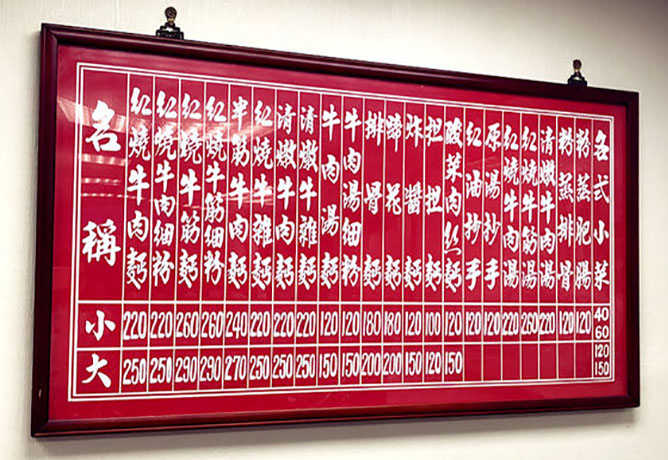 名稱
紅燒牛肉麵
紅燒牛肉細粉
紅燒牛筋麵
紅燒牛筋細粉
半筋牛肉麵
紅燒牛雜麵
清燉牛肉麵
清燉牛雜麵
牛肉湯麵
牛肉湯細粉
排骨麵
蹄花麵
炸醬麵
担担麵
酸菜肉絲麵
紅油抄手
原湯抄手
紅燒牛肉湯
紅燒牛筋湯
清燉牛肉湯
粉蒸排骨
粉蒸肥腸
各式小菜
小 220 220 260 260 240 220 220 220 120 120 180 180 120 100 120 120 120 220 260 220 120 120 40 60
大 250 250 290 290 270 250 250 250 150 150 200 200 150 120 150 120 150